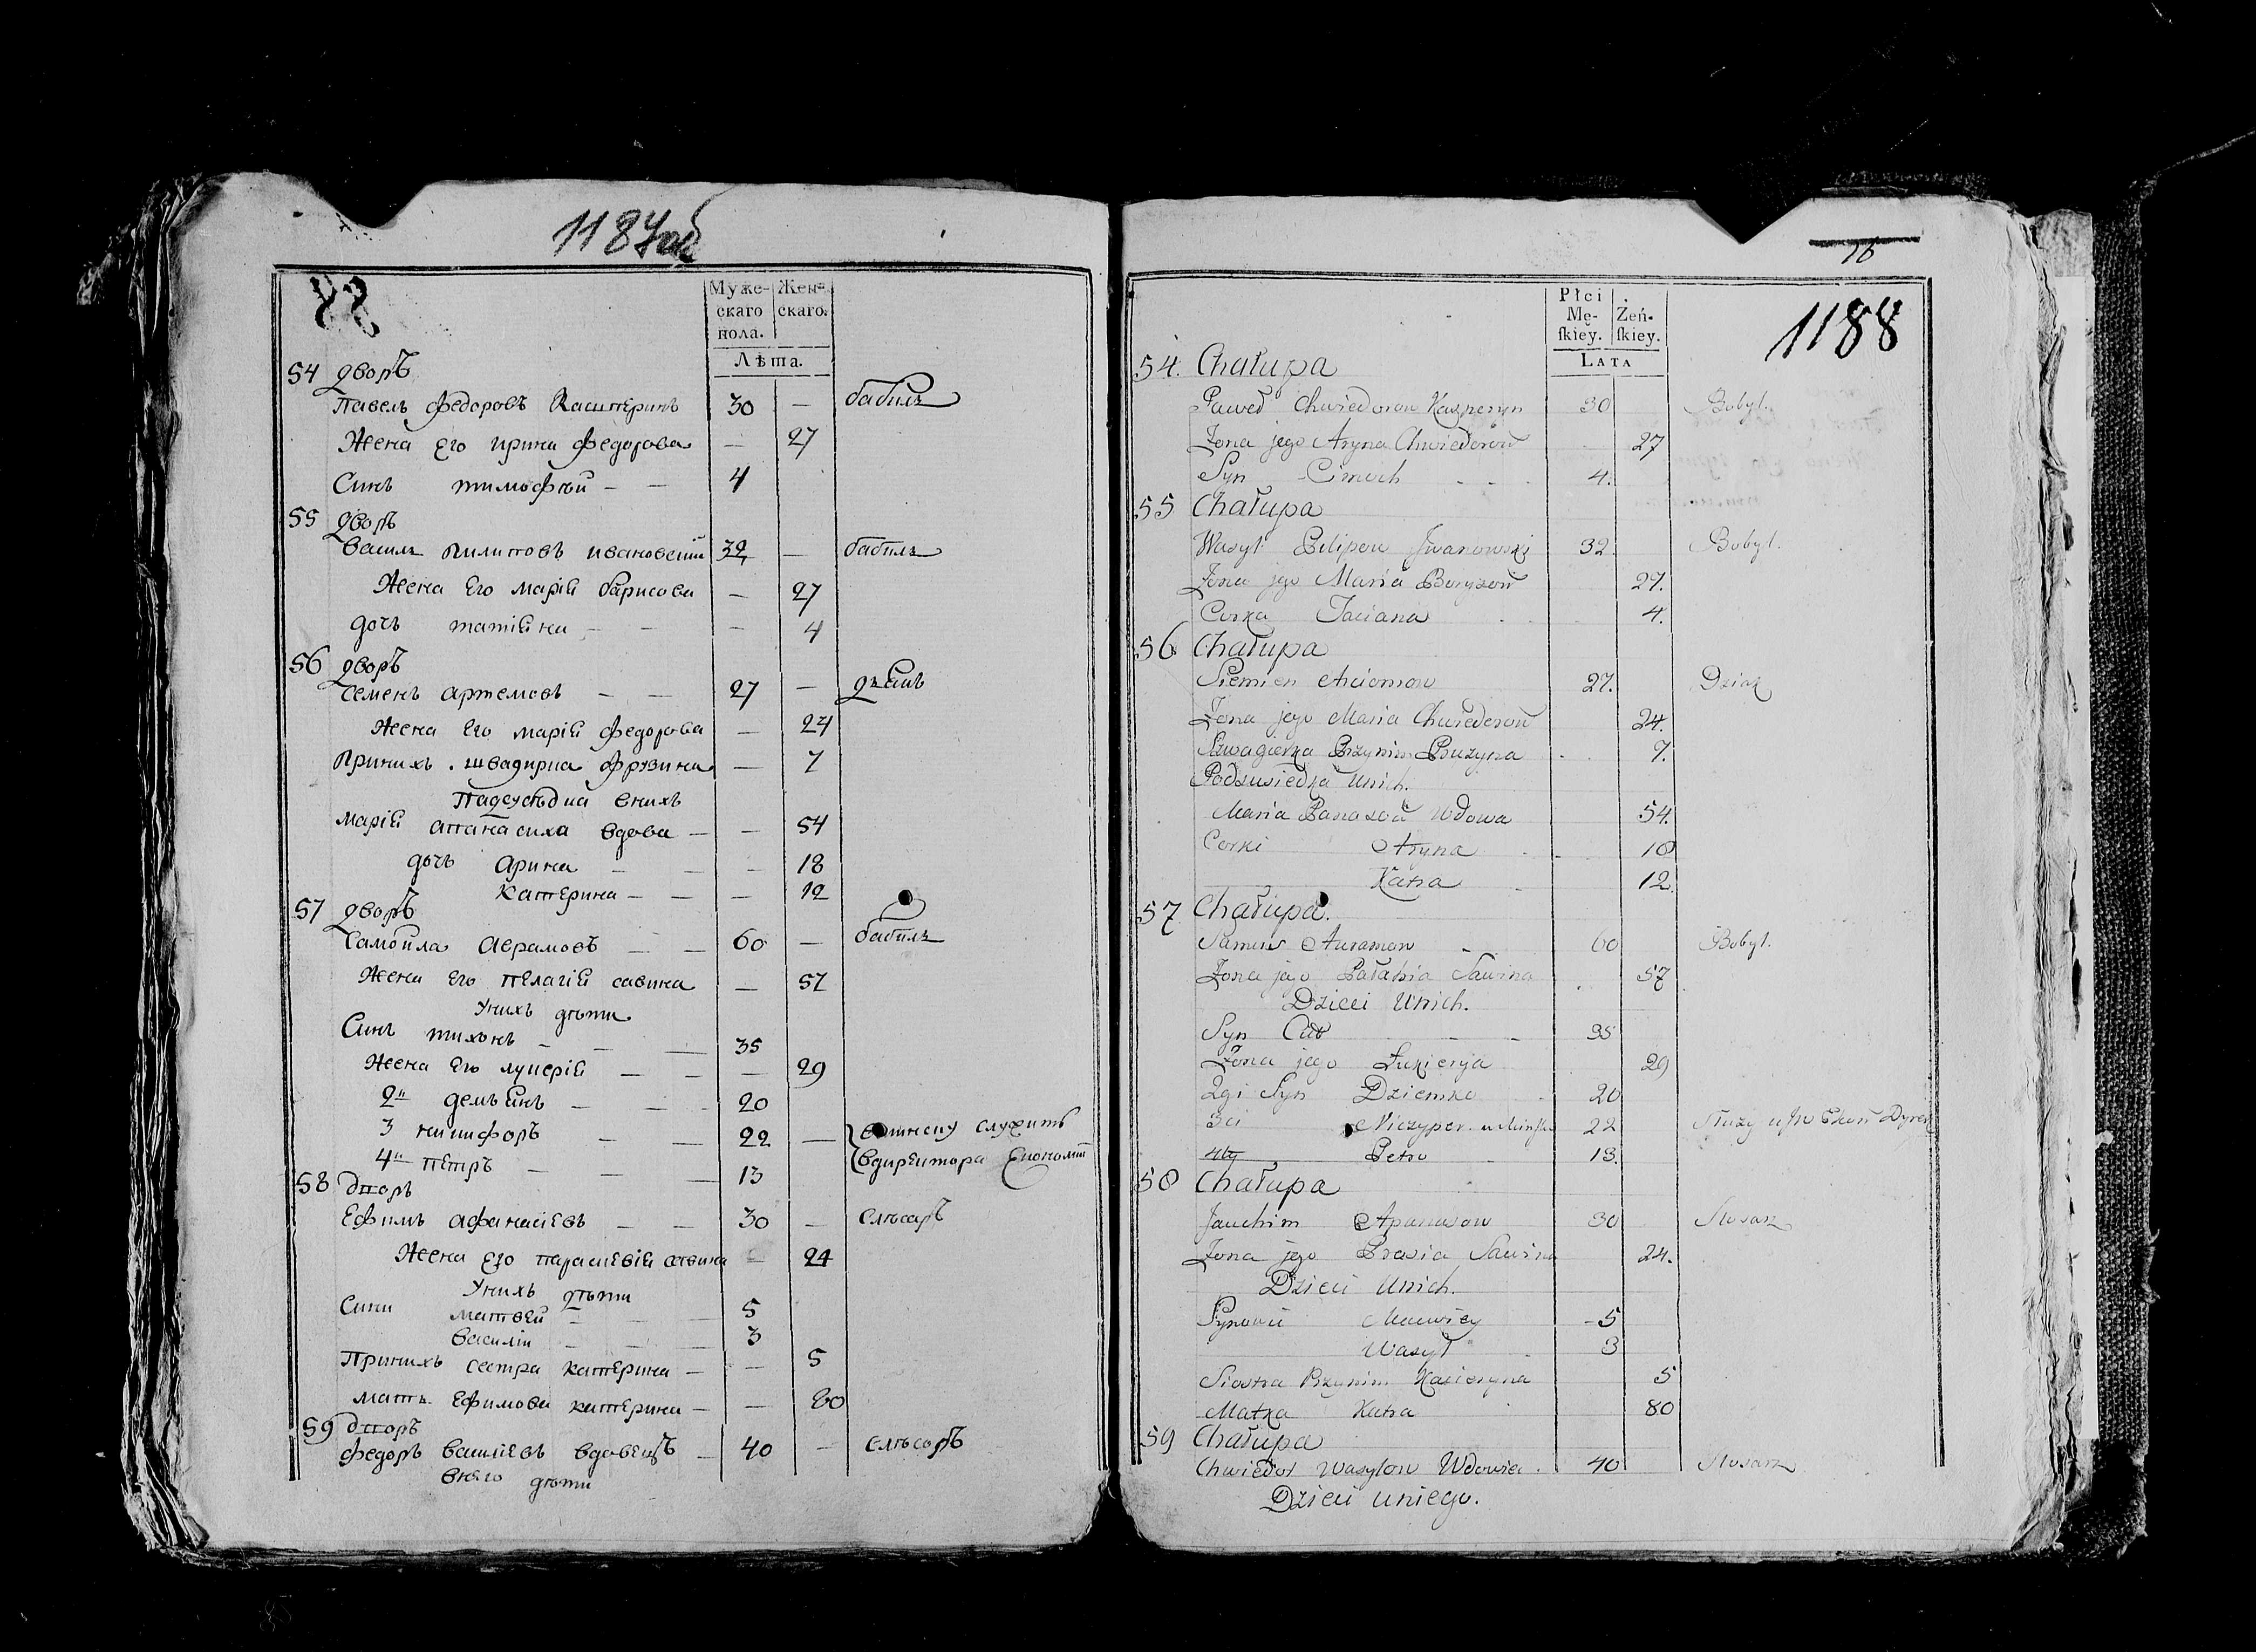 1187об
88
Муже-
скаго
пола.
Жен-
скаго.
Лѣта.
54 дворъ
Павелъ федоровъ Касперинъ 30 — бабиль
Жена Его ирина федорова — 27
Синъ тимофѣй — — 4
55 дворъ
василь пилиповъ ивановскій 32 — бабиль
Жена Его марія барисова — 27
дочь татіяна — — — 4
56 дворъ
семенъ артемовъ — — 27 — дзякъ
Жена Его марія федорова — 24
Принихъ . швагирка — 7
Падсусѣдка внихъ
марія апанасиха вдова — — 54
дочь арина — — — 18
катерина — — — 12
57 дворъ
Самойла аврамовъ — — 60 — бабиль
Жена Его пелагія савина — 57
Унихъ дѣти
Синъ тихонъ — — — 35
Жена Его лукерія — — — 29
2й демьянъ — — — 20
3 никифоръ — — 22 — вминску служить
4й петръ — — — 13 вдиректора Економіи
58 дворъ
Ефимъ афанасіевъ — — 30 — слѣсаръ
Жена Его параскевія савина — 24
Унихъ дѣти
Сини матвей — — — 5
василій — — — 3
Принихъ сестра катерина — — 5
мать Ефимова катерина — — 80
59 дворъ
федоръ василіевъ вдовецъ — 40 — слѣсаръ
внего дѣти
76
1188
Płci
Mę-
ſkiey.
Żeń-
ſkiey.
LATA
54. Chałupa
Paweł Chwiedorow Kasperyn 30 Bobyl.
Żona jego Aryna Chwiedorow 27
Syn Cimoch 4.
55 Chałupa
Wasyl Pilipow Jwanowski 32 Bobyl.
Żona jego Maria Boryzow 27.
Corka Taciana 4.
56 Chałupa
Siemion Arciomow 27. Dziak
Żona jego Maria Chwiedorow 24.
Szwagierka Przynim Pruzyna 7.
Podsusiedka Unich.
Maria Panasowa Wdowa 54.
Corki Aryna 18
Katra 12.
57 Chałupa.
Auramow 60 Bobyl.
Żona jego Pałahia Sawina 57
Dzieci Unich.
Syn 35
Żona jego Łukierya 29
2gi Syn Dziemko 20
3ci Niczyper w Mińsku 22 Służy u
4ty Petro 13.
58 Chałupa
Jauchim Apanasow 30 Slosarz
Żona jego Prasia Sawina 24.
Dzieci Unich.
Synowie Maciwiey 5
Wasyl 3
Siostra Przynim Kacieryna 5
Matka Katra 80
59 Chałupa
Chwiedor Wasylow Wdowiec 40 Slosarz
Dzieci uniego.